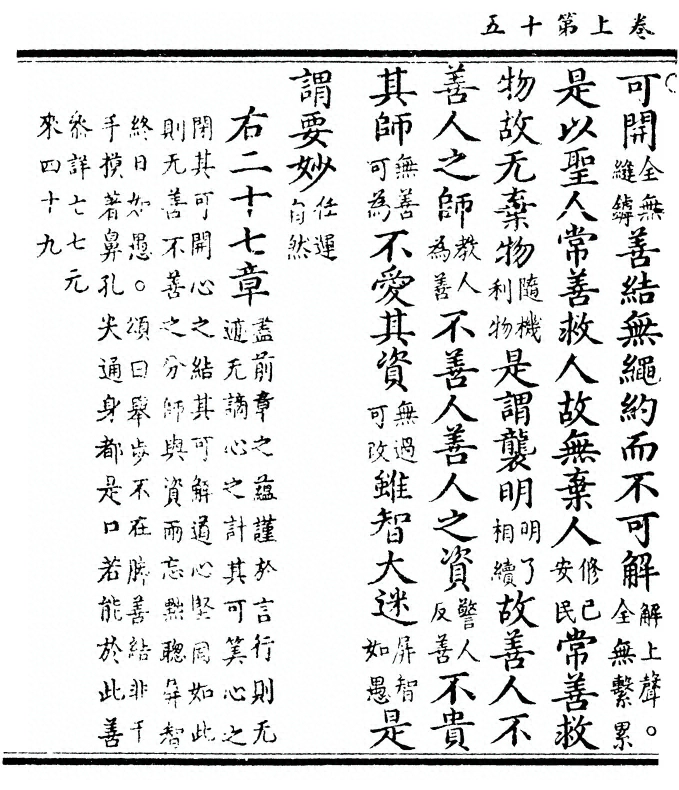 卷上第十五
可開全無縫鏬善結無繩約而不可解解上聲。全無繫累
是以聖人常善救人故無棄人修己安民常善救
物故无棄物隨機利物是謂襲明明了相續故善人不
善人之師教人為善不善人善人之資警人反善不貴
其師無善可為不愛其資無過可改雖智大迷屏智如愚是
謂要妙任運自然
右二十七章盡前章之蘊謹於言行則无
迹无謫心之計其可筭心之
閉其可開心之結其可解道心堅固如此
則无善不善之分師與資兩忘黜聰屏智
終日如愚。頌曰舉步不在腳善結非干
手摸著鼻孔尖通身都是口若能於此善
叅詳七七元
來四十九